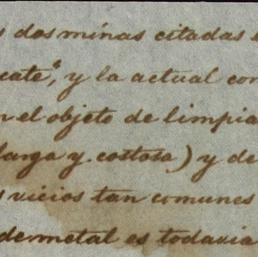 s dos minas citadas
cate", y la actual con
n el objeto de limpia
larga y costosa) y de
s vicios tan comunes
de metal es todavia